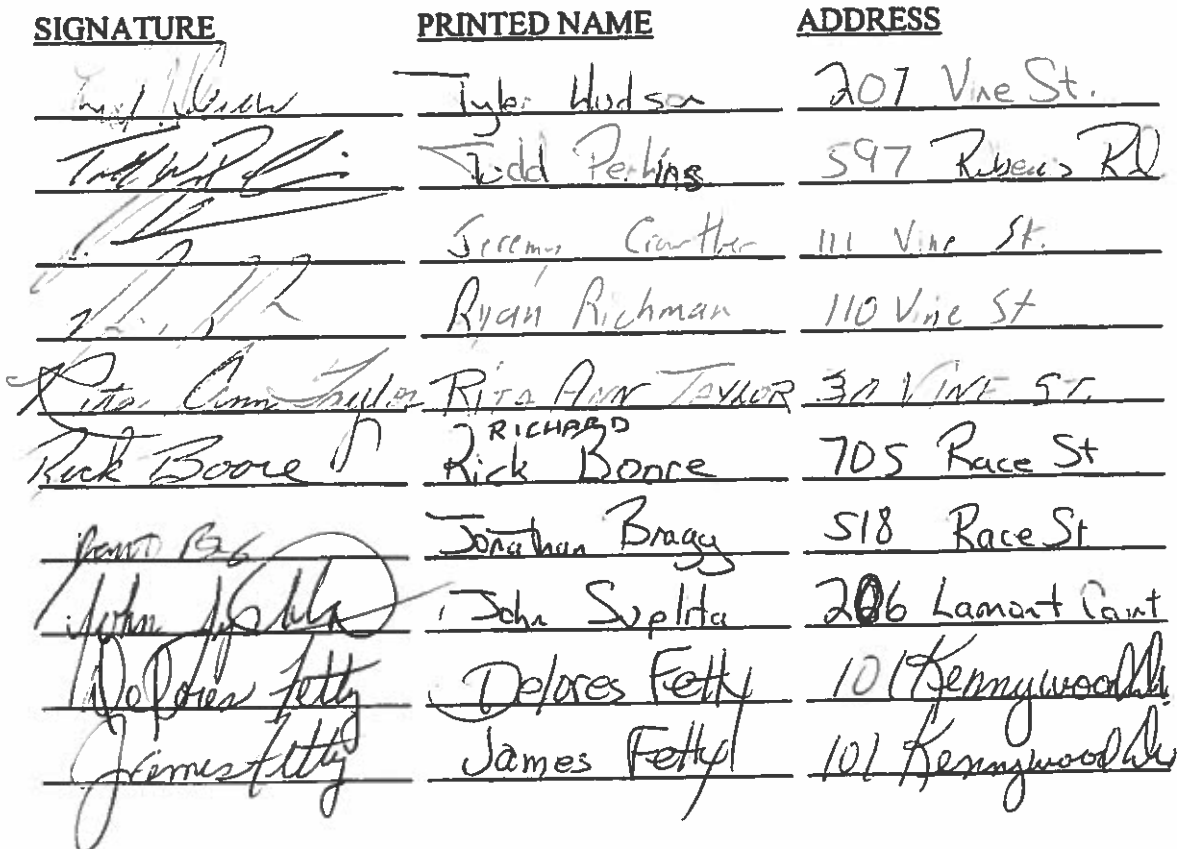 SIGNATURE PRINTED NAME ADDRESS
Tyler Hudson 207 Vine St.
Todd Perkins 597 Rd
Jeremy Crowther 111 Vine St.
Ryan Richman 110 Vine St
Rita Ann Taylor RITA ANN TAYLOR VINE ST.
RICHARD
Rick Boore Rick Boore 705 Race St
Jonathan Bragg 518 Race St
John John Suplita 206 Lamont Court
DeLores Fetty Delores Fetty 101 Kennywood Dr
James Fetty James Fetty 101 Kennywood Dr